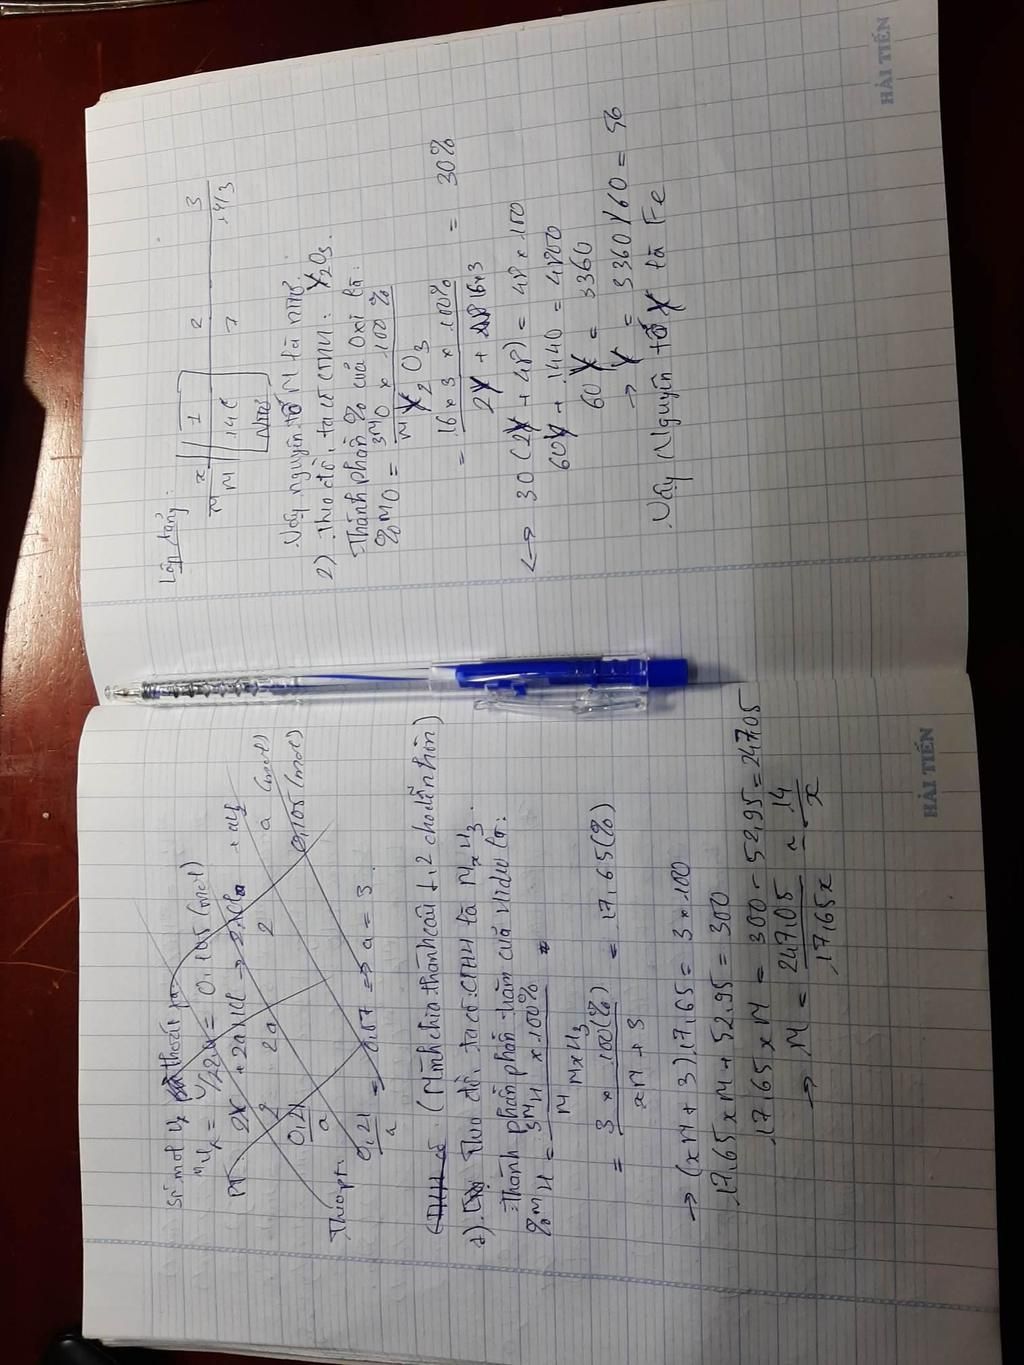 Số mol H₂ thoát ra
nH₂ = V/22,4 = 0,105 (mol)
PT 2X + 2aHCl → 2XClₐ + aH₂
2 2a 2 a (mol)
0,21/a 0,105 (mol)
Theo pt:
0,21/a = 0,07 => a = 3.
(Mình chia thành câu 1, 2 cho dễ nhìn)
1) Theo đề, ta có: CTHH là MₓH₃.
Thành phần phần trăm của Hidro là:
%mH = 3MH x 100% / M MxH3
= 3 x 100(%) / xM + 3 = 17,65(%)
→ (xM + 3).17,65 = 3 x 100
17,65 xM + 52,95 = 300
17,65 xM = 300 - 52,95 = 247,05
→ M = 247,05 / 17,65x ~ 14 / x
HẢI TIẾN
Lập bảng:
x | 1 2 3
M | 14 7 14/3
Vậy nguyên tố M là
2) Theo đề, ta có CTHH: X₂O₃.
Thành phần % của Oxi là:
%mO = 3MO x 100% / M X2O3
= 16 x 3 x 100% / 2X + 16x3 = 30%
<-> 30(2X + 48) = 48 x 100
60X + 1440 = 4800
60X = 3360
→ X = 3360/60 = 56
Vậy Nguyên tố X là Fe
HẢI TIẾN